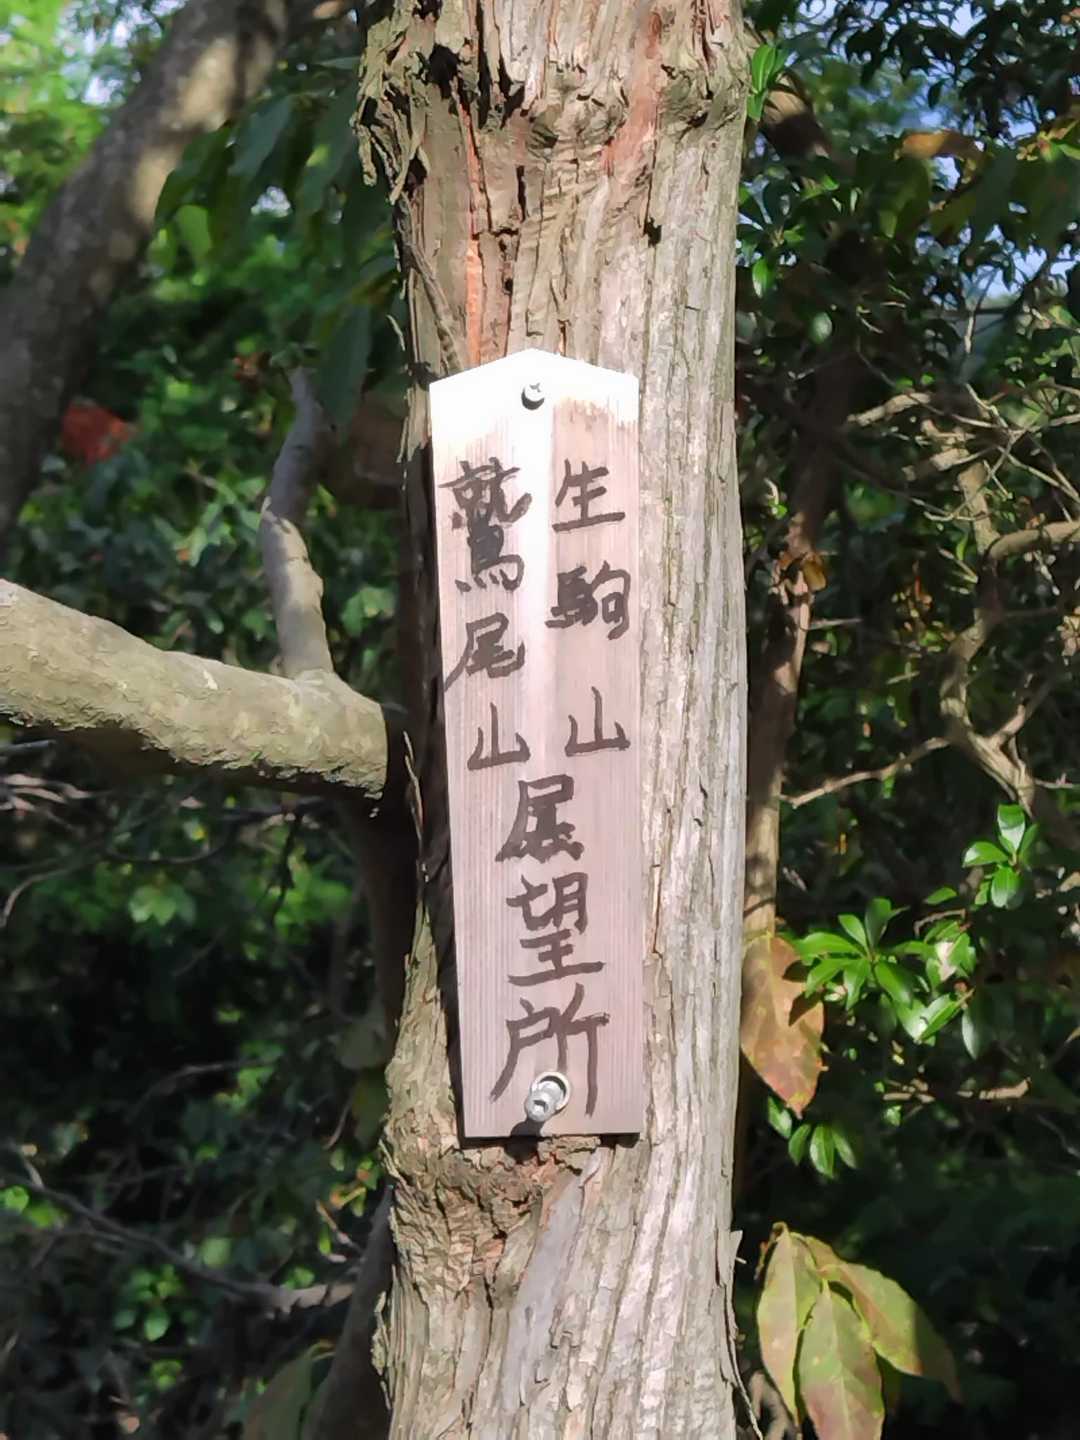 生駒山
鷲尾山
展望所